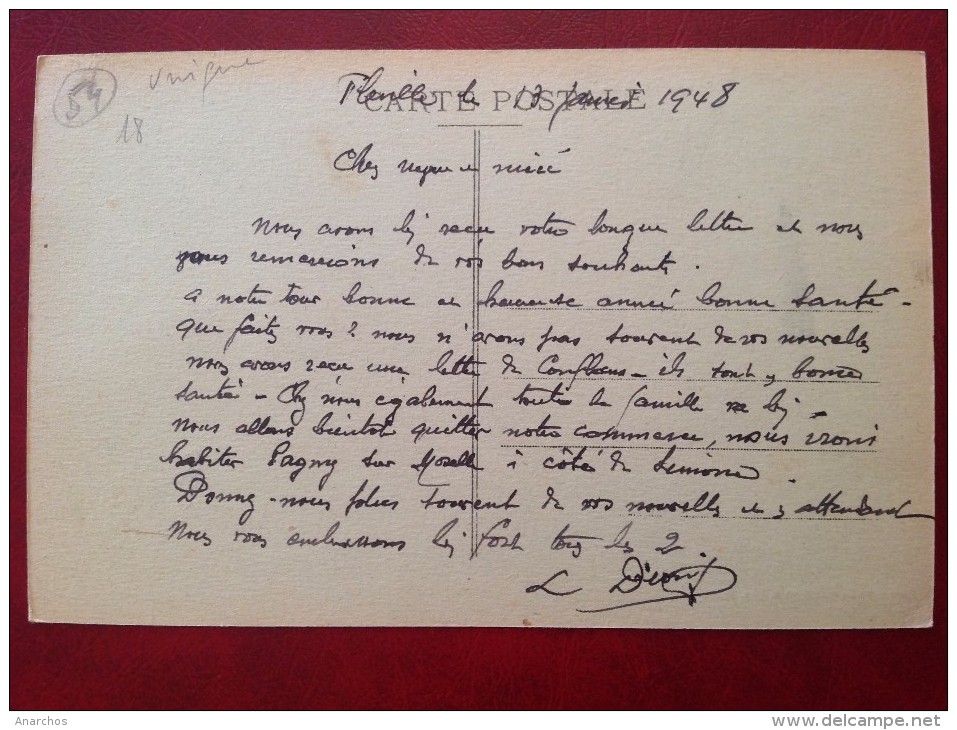 54
unique
18
CARTE POSTALE
Fléville le 13 janvier 1948
Cher neveu et nièce
Nous avons bj recu votre longue lettre et nous
vous remercions de vos bons souhaits.
a notre tour bonne et heureuse année bonne santé -
que faites vous? nous n'avons pas souvent de vos nouvelles
nous avons recu une lettre de Conflans - ils sont en bonne
santé - Chez nous également toute la famille va bj -
nous allons bientot quitter notre commerce, nous irons
habiter Pagny sur Moselle à côté de Simone
Donnez-nous plus souvent de vos nouvelles et en attendant
nous vous embrassons bj fort tous les 2
L
Anarchos
www.delcampe.net